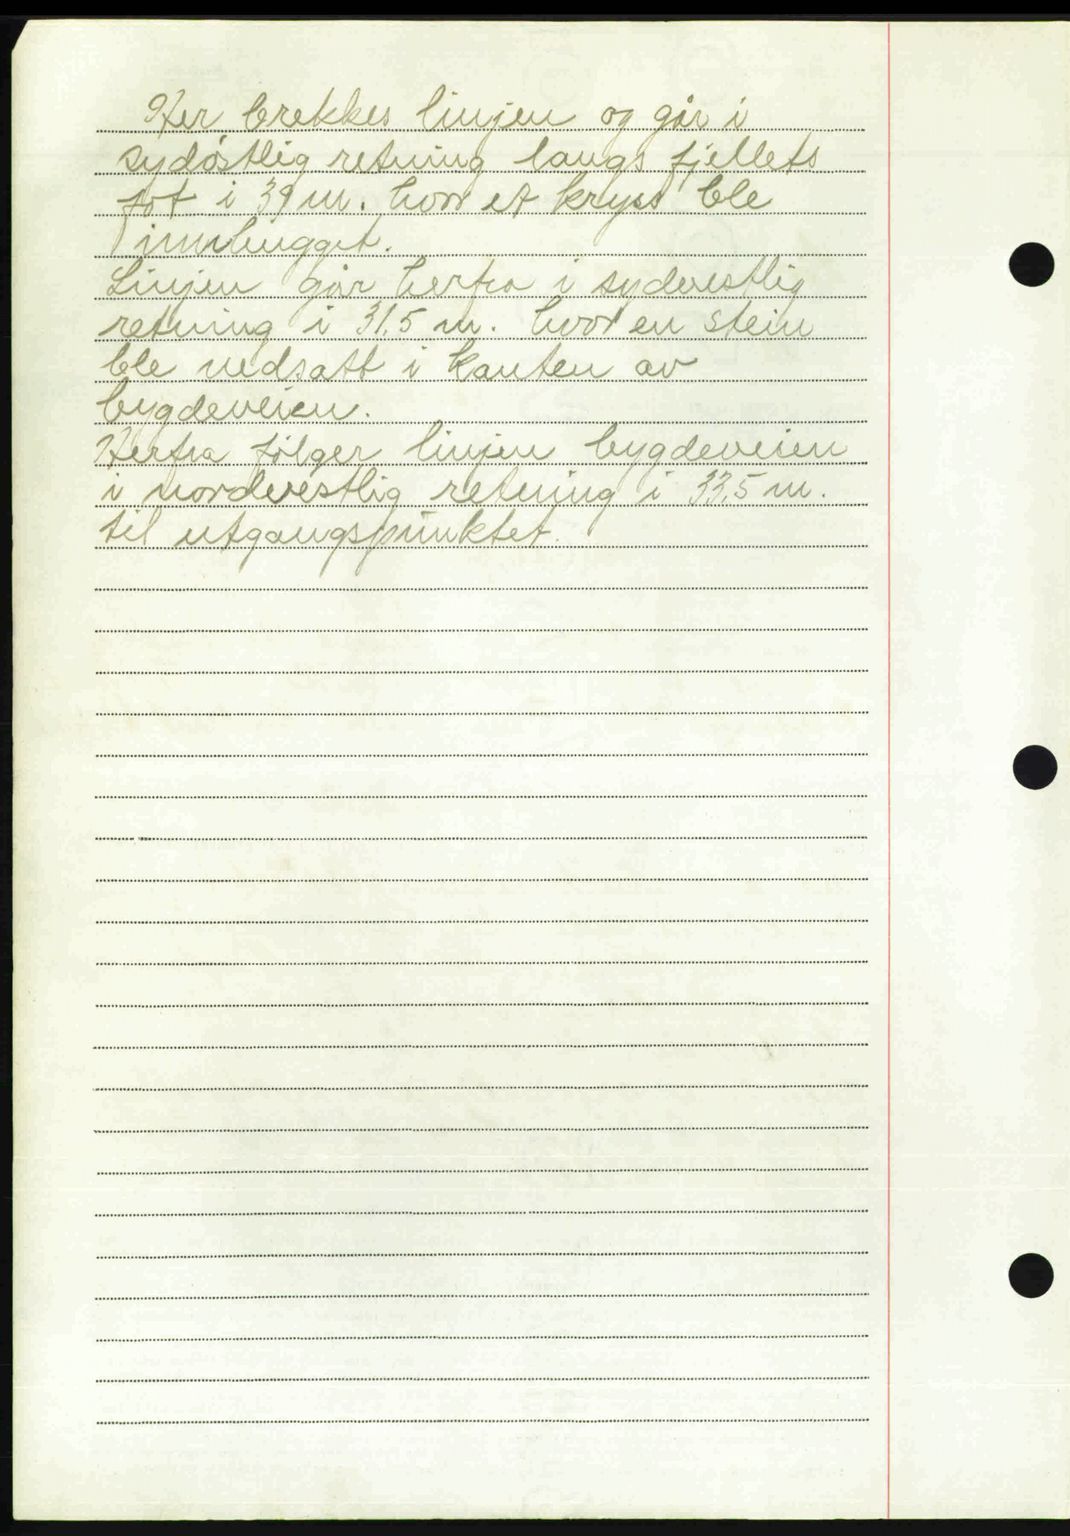 Her brekkes linjen og går i
sydöstlig retning langs fjellets
fot i 39 m. hvor et kryss ble
innhugget.
Linjen går herfra i sydvestlig
retning i 31,5 m. hvor en stein
ble nedsatt i kanten av
bygdeveien.
Herfra fölger linjen bygdeveien
i nordvestlig retning i 33,5 m.
til utgangspunktet.